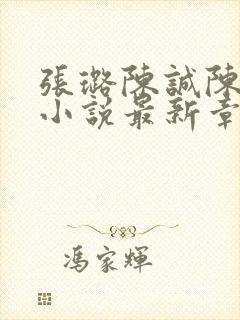 張璐陳誠陳
小說最新章
馮家輝